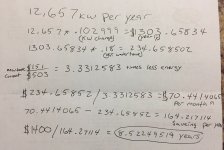 12,657 kW per year
12,657 * .102999 = $1303.65834
(kW charge)
1303.65834 * .18 = 234.658502
market $151
current $503
= 3.3312583 times less energy
$234.658502 / 3.3312583 = $70.4414065
per month
70.4414065 - 234.65852 = 164.217114
saving per
$1400 / 164.217114 = 8.52249514 years